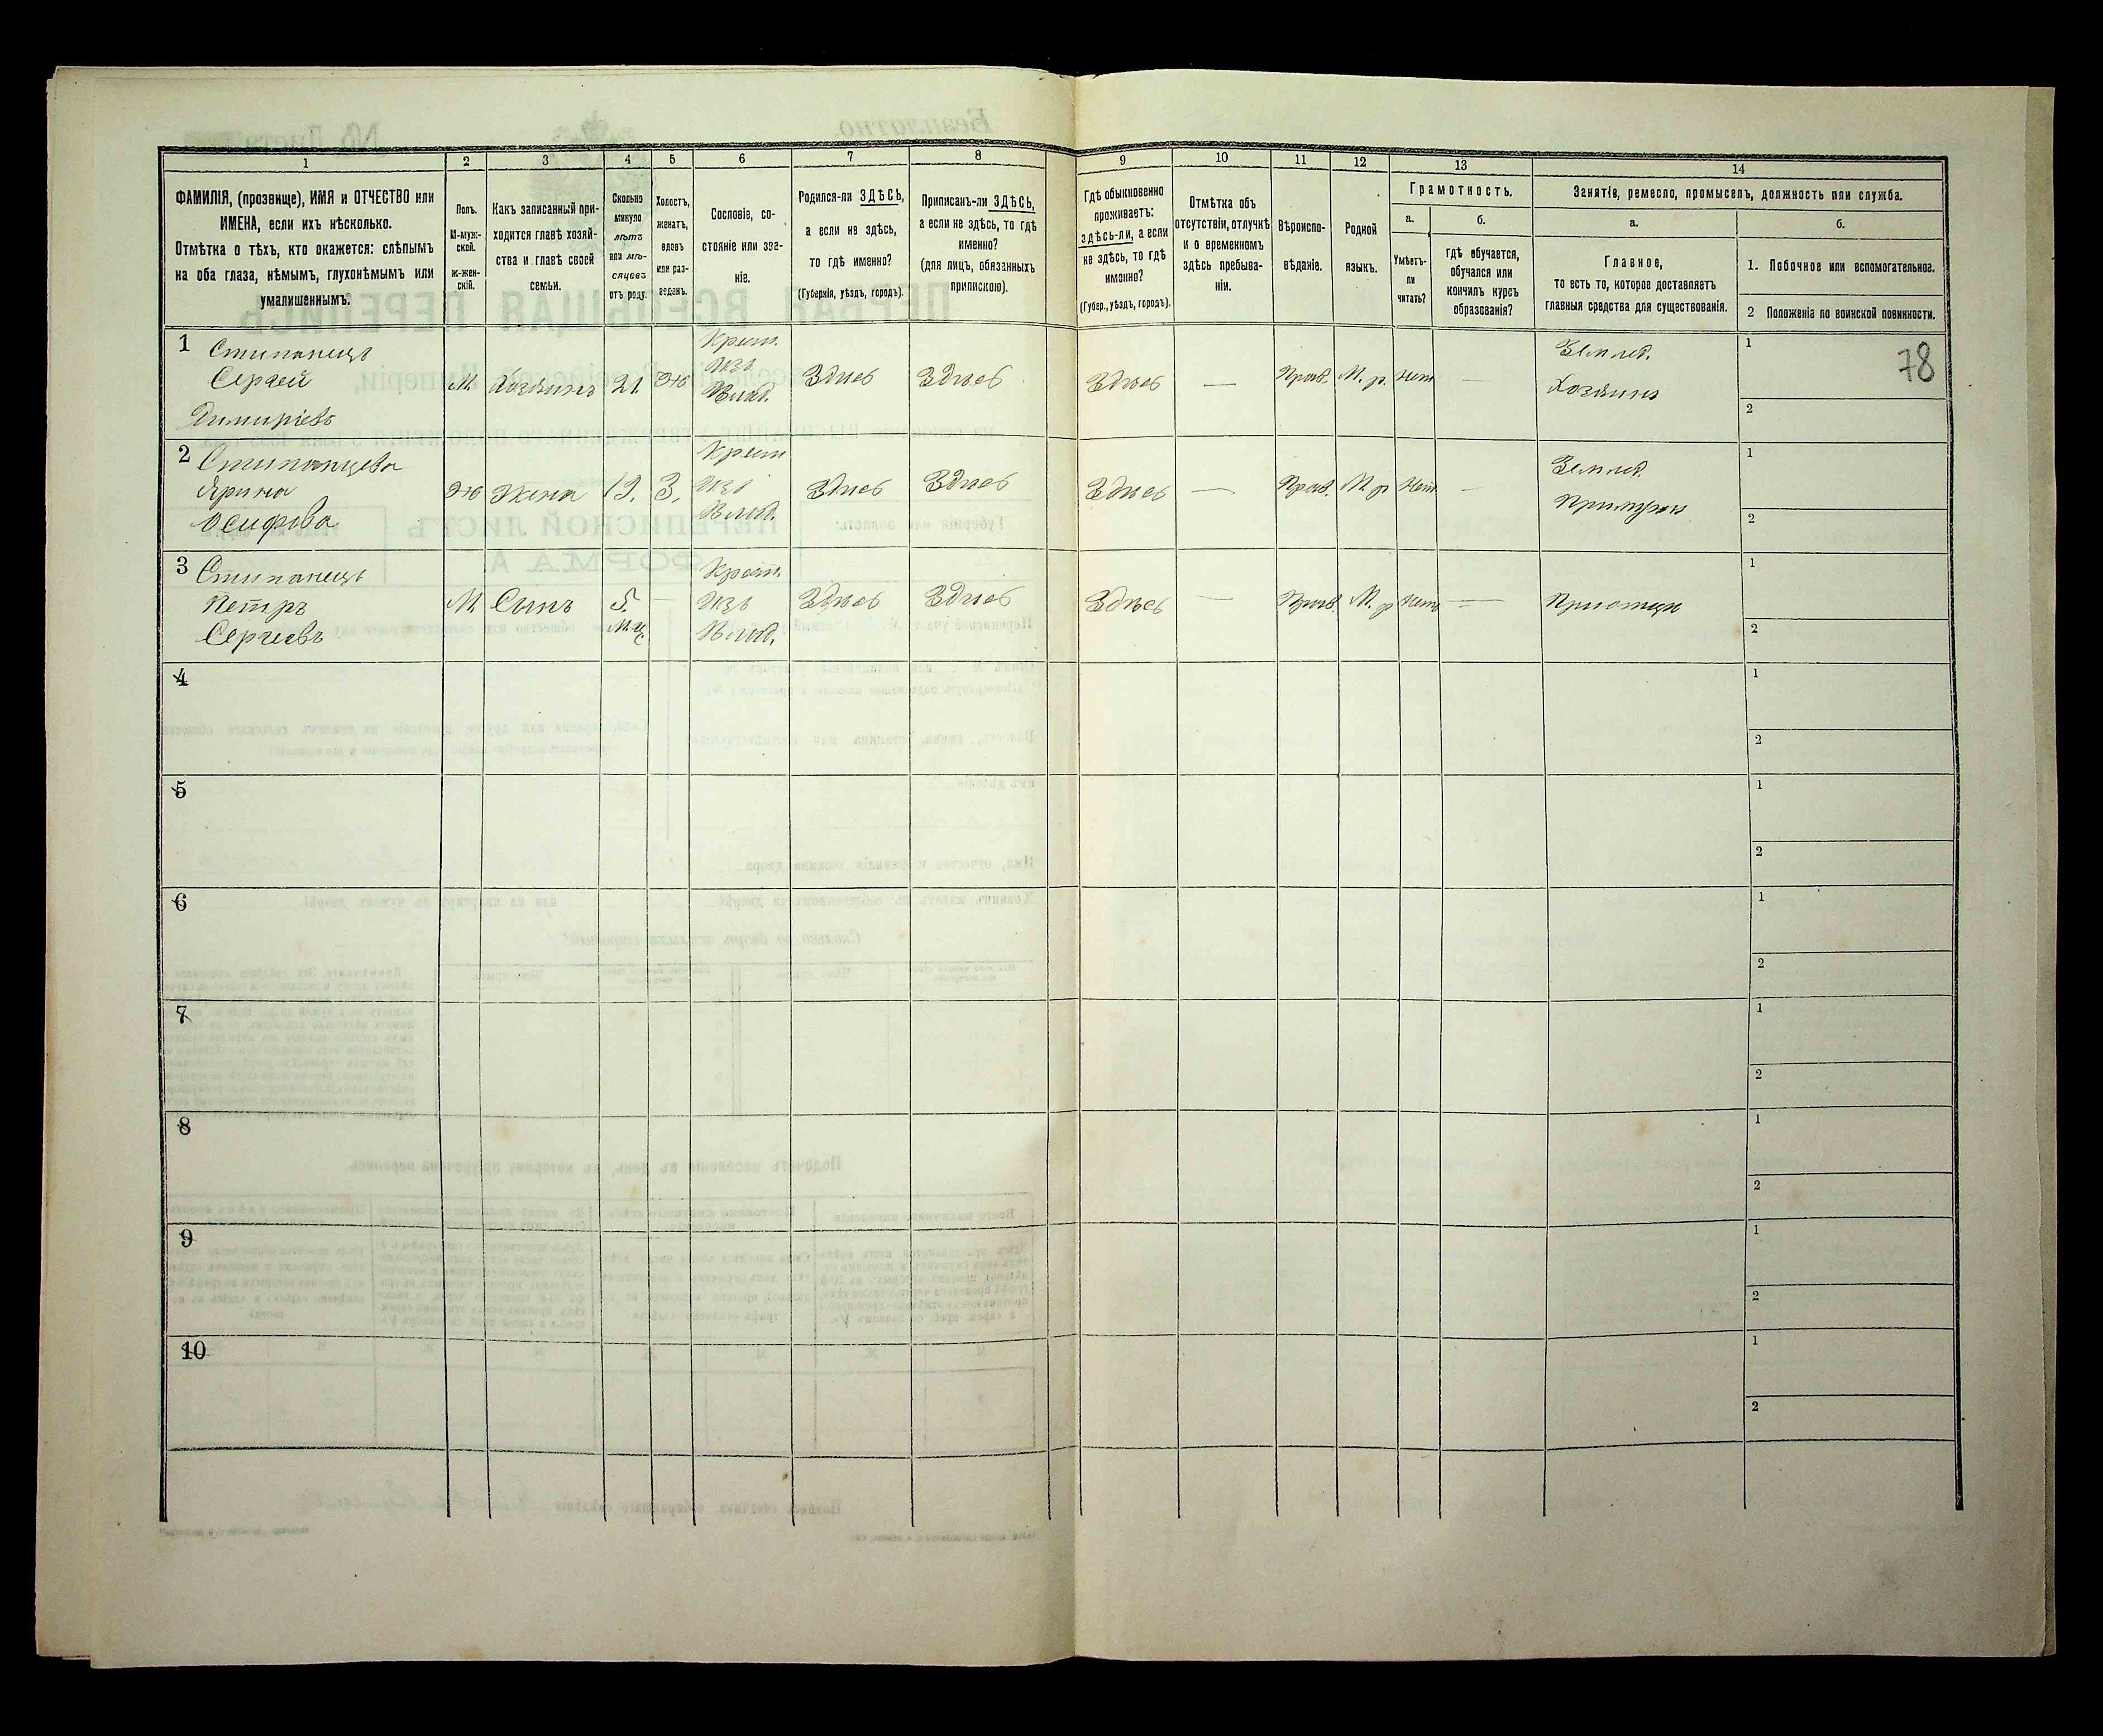 1
2
3
4
5
6
7
8
9
10
11
12
13
14
ФАМИЛІЯ, (прозвище), ИМЯ и ОТЧЕСТВО или
ИМЕНА, если ихъ нѣсколько.
Отмѣтка о тѣхъ, кто окажется: слѣпымъ
на оба глаза, нѣмымъ, глухонѣмымъ или
умалишеннымъ.
Полъ.
М-муж-
ской.
Ж-жен-
скій.
Какъ записанный при-
ходится главѣ хозяй-
ства и главѣ своей
семьи.
Сколько
минуло
лѣтъ
или мѣ-
сяцевъ
отъ роду.
Холостъ,
женатъ,
вдовъ
или раз-
веденъ.
Сословіе, со-
стояніе или зва-
ніе.
Родился-ли ЗДѢСЬ,
а если не здѣсь,
то гдѣ именно?
(Губернія, уѣздъ, городъ).
Приписанъ-ли ЗДѢСЬ,
а если не здѣсь, то гдѣ
именно?
(для лицъ, обязанныхъ
припискою).
Гдѣ обыкновенно
проживаетъ:
здѣсь-ли, а если
не здѣсь, то гдѣ
именно?
(Губер., уѣздъ, городъ).
Отмѣтка объ
отсутствіи, отлучкѣ
и о временномъ
здѣсь пребыва-
ніи.
Вѣроиспо-
вѣданіе.
Родной
языкъ.
Грамотность.
а.
б.
Умѣетъ-
ли
читать?
гдѣ обучается,
обучался или
кончилъ курсъ
образованія?
Занятіе, ремесло, промыселъ, должность или служба.
а.
б.
Главное,
то есть то, которое доставляетъ
главныя средства для существованія.
1. Побочное или вспомогательное.
2 Положеніе по воинской повинности.
78
1 Стипанецъ
Сергей
Димиріевъ
М
Хозяинъ
21
Ж
Крест.
Изъ
Влад.
Здѣсь
Здѣсь
Здѣсь
—
Прав.
М. р.
Нет
—
Землед.
Хозяинъ
1
2
2 Стипанцева
Ярина
Осифова
Ж
Жена
19.
З.
Крест
Изъ
Влад.
Здѣсь
Здѣсь
Здѣсь
—
Прав.
М. р
Нет
—
Землед.
1
2
3 Стипанецъ
Петръ
Сергеевъ
М
Сынъ
5.
М-ц.
—
Крест.
Изъ
Влад.
Здѣсь
Здѣсь
Здѣсь
—
Прав.
М. р
Нет
—
При отцѣ
1
2
4
1
2
5
1
2
6
1
2
7
1
2
8
1
2
9
1
2
10
1
2